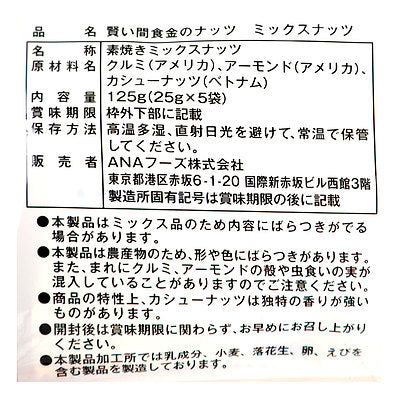 品名 賢い間食金のナッツ ミックスナッツ
名称 素焼きミックスナッツ
原材料名 クルミ(アメリカ)、アーモンド(アメリカ)、
カシューナッツ(ベトナム)
内容量 125g(25g×5袋)
賞味期限 枠外下部に記載
保存方法 高温多湿、直射日光を避けて、常温で保管
してください。
販売者 ANAフーズ株式会社
東京都港区赤坂6-1-20 国際新赤坂ビル西館3階
製造所固有記号は賞味期限の後に記載
●本製品はミックス品のため内容にばらつきがでる
場合があります。
●本製品は農産物のため、形や色にばらつきがあります。
また、まれにクルミ、アーモンドの殻や虫食いの実が
混入していることがありますのでご注意ください。
●商品の特性上、カシューナッツは独特の香りが強い
ものがあります。
●開封後は賞味期限に関わらず、お早めにお召し上がり
ください。
●本製品加工所では乳成分、小麦、落花生、卵、えびを
含む製品を製造しております。